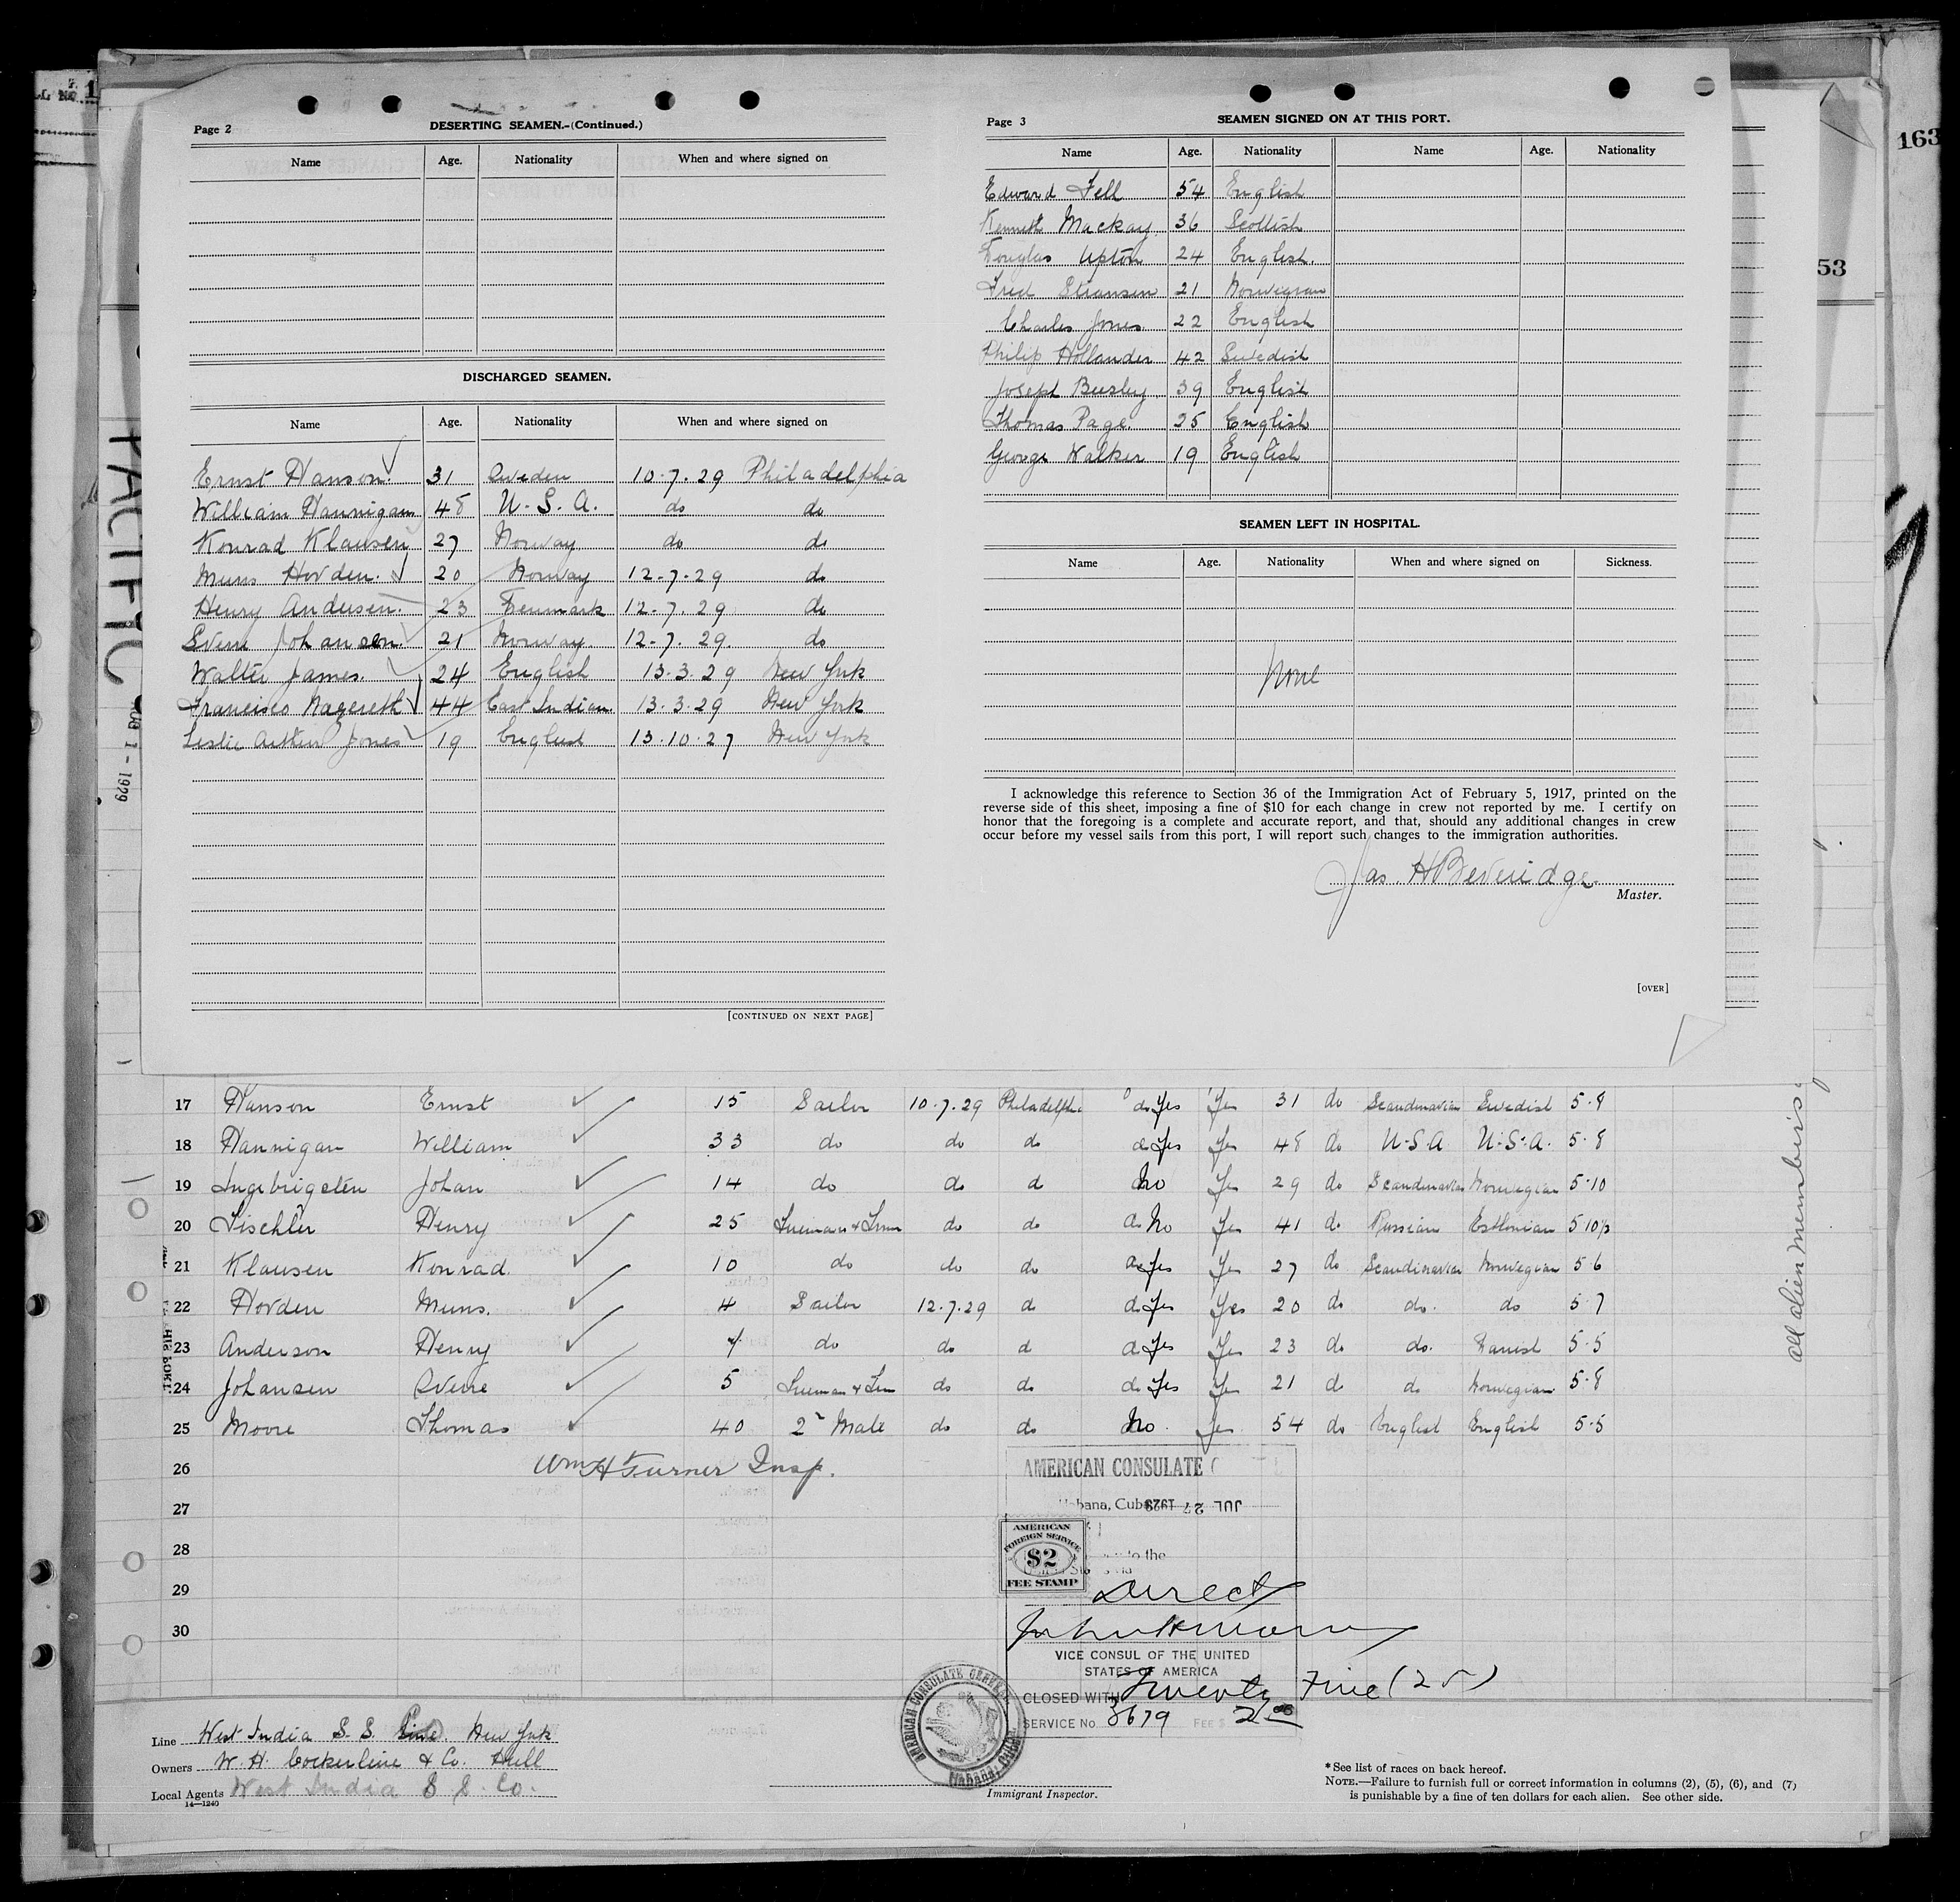 163
53
PACIFIC
1 - 1929
Page 2
DESERTING SEAMEN.-(Continued.)
Name Age. Nationality When and where signed on
DISCHARGED SEAMEN.
Name Age. Nationality When and where signed on
Ernst Hanson 31 Sweden 10.7.29 Philadelphia
William Hannigan 48 U.S.A. do do
Konrad Klausen 27 Norway do do
Muns Hovden. 20 Norway 12-7.29 do
Henry Andersen. 23 Denmark 12-7.29 do
Sverre Johansen 21 Norway 12-7.29. do
Walter James. 24 English 13.3.29 New York
Francisco Nazereth 44 East Indian 13.3.29 New York
Leslie Aitken Jones 19 English 13.10.27 New York
[CONTINUED ON NEXT PAGE]
Page 3
SEAMEN SIGNED ON AT THIS PORT.
Name Age. Nationality Name Age. Nationality
Edward Fell 54 English
Kenneth Mackay 36 Scottish
Douglas Upton 24 English.
Fred 21 Norwegian
Charles Jones. 22 English
Philip Hollander 42 Swedish
Joseph 39 English
Thomas Page 25 English
George Walker 19 English
SEAMEN LEFT IN HOSPITAL.
Name Age. Nationality When and where signed on Sickness.
None
I acknowledge this reference to Section 36 of the Immigration Act of February 5, 1917, printed on the
reverse side of this sheet, imposing a fine of $10 for each change in crew not reported by me. I certify on
honor that the foregoing is a complete and accurate report, and that, should any additional changes in crew
occur before my vessel sails from this port, I will report such changes to the immigration authorities.
Jas. H Beveridge
Master.
[OVER]
17 Hanson Ernst 15 Sailor 10.7.29 Philadelphia do Yes Yes 31 do Scandinavian Swedish 5.8
18 Hannigan William 33 do do do do Yes Yes 48 do U.S.A U.S.A. 5.8
19 Ingebrigsten Johan 14 do do d No Yes 29 do Scandinavian Norwegian 5.10
20 Tischler Henry 25 do do do No Yes 41 do Russian Esthonian 5 10½
21 Klausen Konrad. 10 do do do do Yes Yes 27 do Scandinavian Norwegian 5.6
22 Hovden Muns. 4 Sailor 12.7.29 d do Yes Yes 20 do do. do 5.7
23 Anderson Henry 4 do do d do Yes Yes 23 do do. Danish 5.5
24 Johansen Sverre 5 do do do Yes Yes 21 do do Norwegian 5.8
25 Moore Thomas 40 2 Mate do do No. Yes 54 do English English 5.5
26 Wm H Turner Insp.
27
28
29
30
all alien members
AMERICAN CONSULATE
Habana, Cuba JUL 27 1929
AMERICAN
FOREIGN SERVICE
$2
FEE STAMP
to the
Direct
VICE CONSUL OF THE UNITED
STATES OF AMERICA
CLOSED WITH Twenty Five (25)
SERVICE No. 3679 FEE $ 2.00
AMERICAN CONSULATE GENERAL
Habana, Cuba.
Line West India S.S. Line. New York
Owners W. H. Cockerline & Co. Hull
Local Agents West India S S. Co.
14—1240
Immigrant Inspector.
*See list of races on back hereof.
NOTE.—Failure to furnish full or correct information in columns (2), (5), (6), and (7)
is punishable by a fine of ten dollars for each alien. See other side.